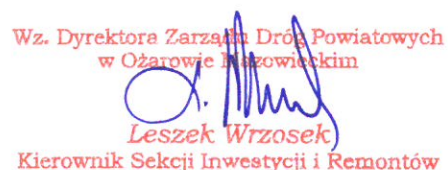 Wz. Dyrektora Zarządu Dróg Powiatowych
w Ożarowie Mazowieckim
Leszek Wrzosek
Kierownik Sekcji Inwestycji i Remontów